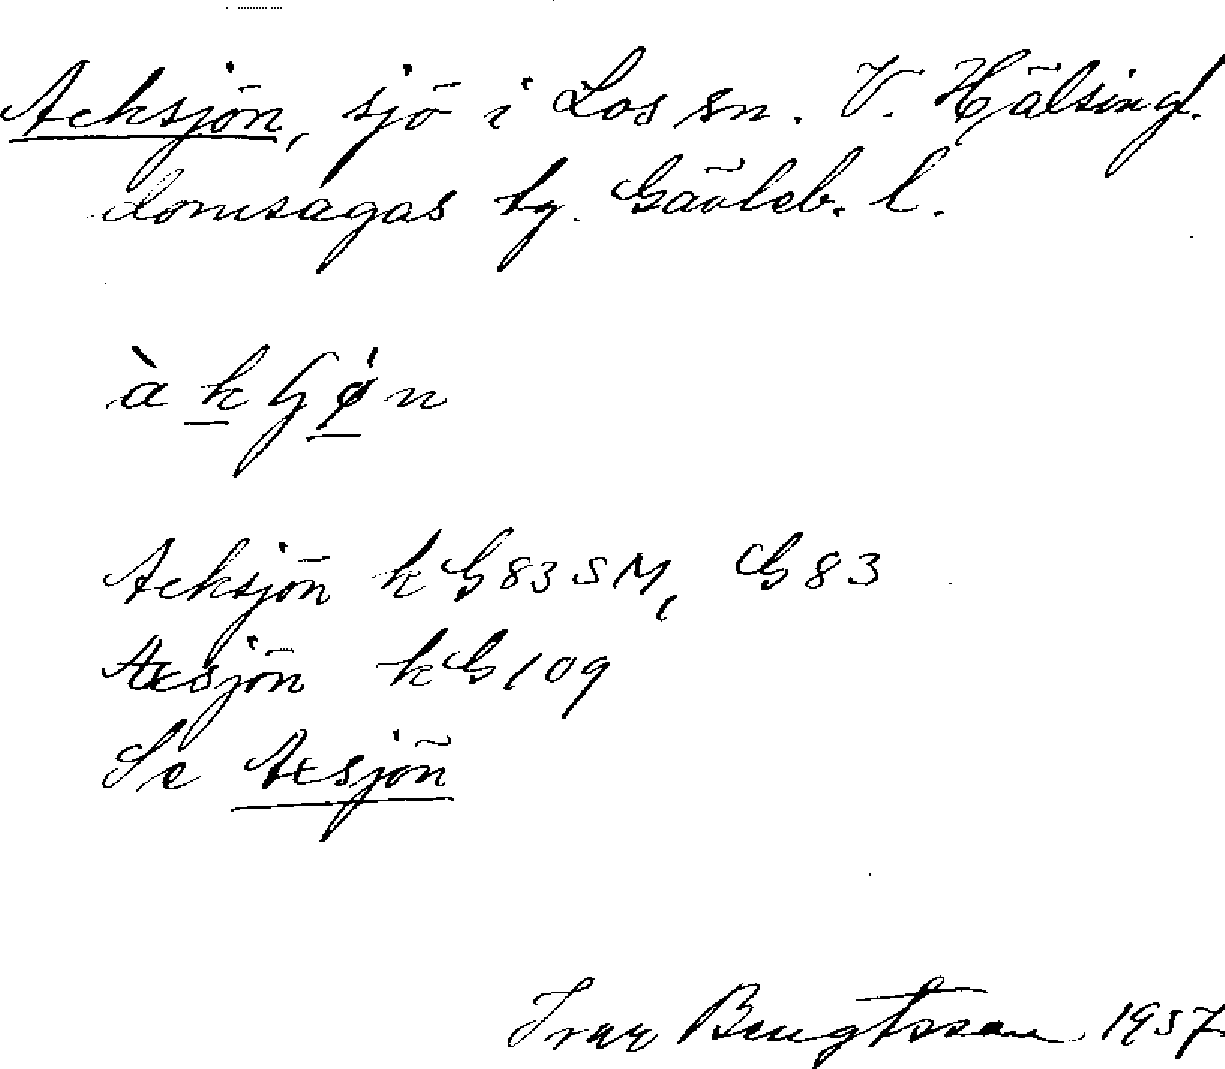 Acksjön, sjö i Los sn. V. Hälsingl.
domsagas tg. Gävleb. l.
Acksjön k G83SM, G83
Axsjön kG109
Se Axsjön
Ivar Bengtsson 1957